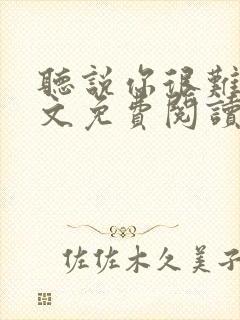 聽說你很難
文免費閱讀
佐佐木久美子